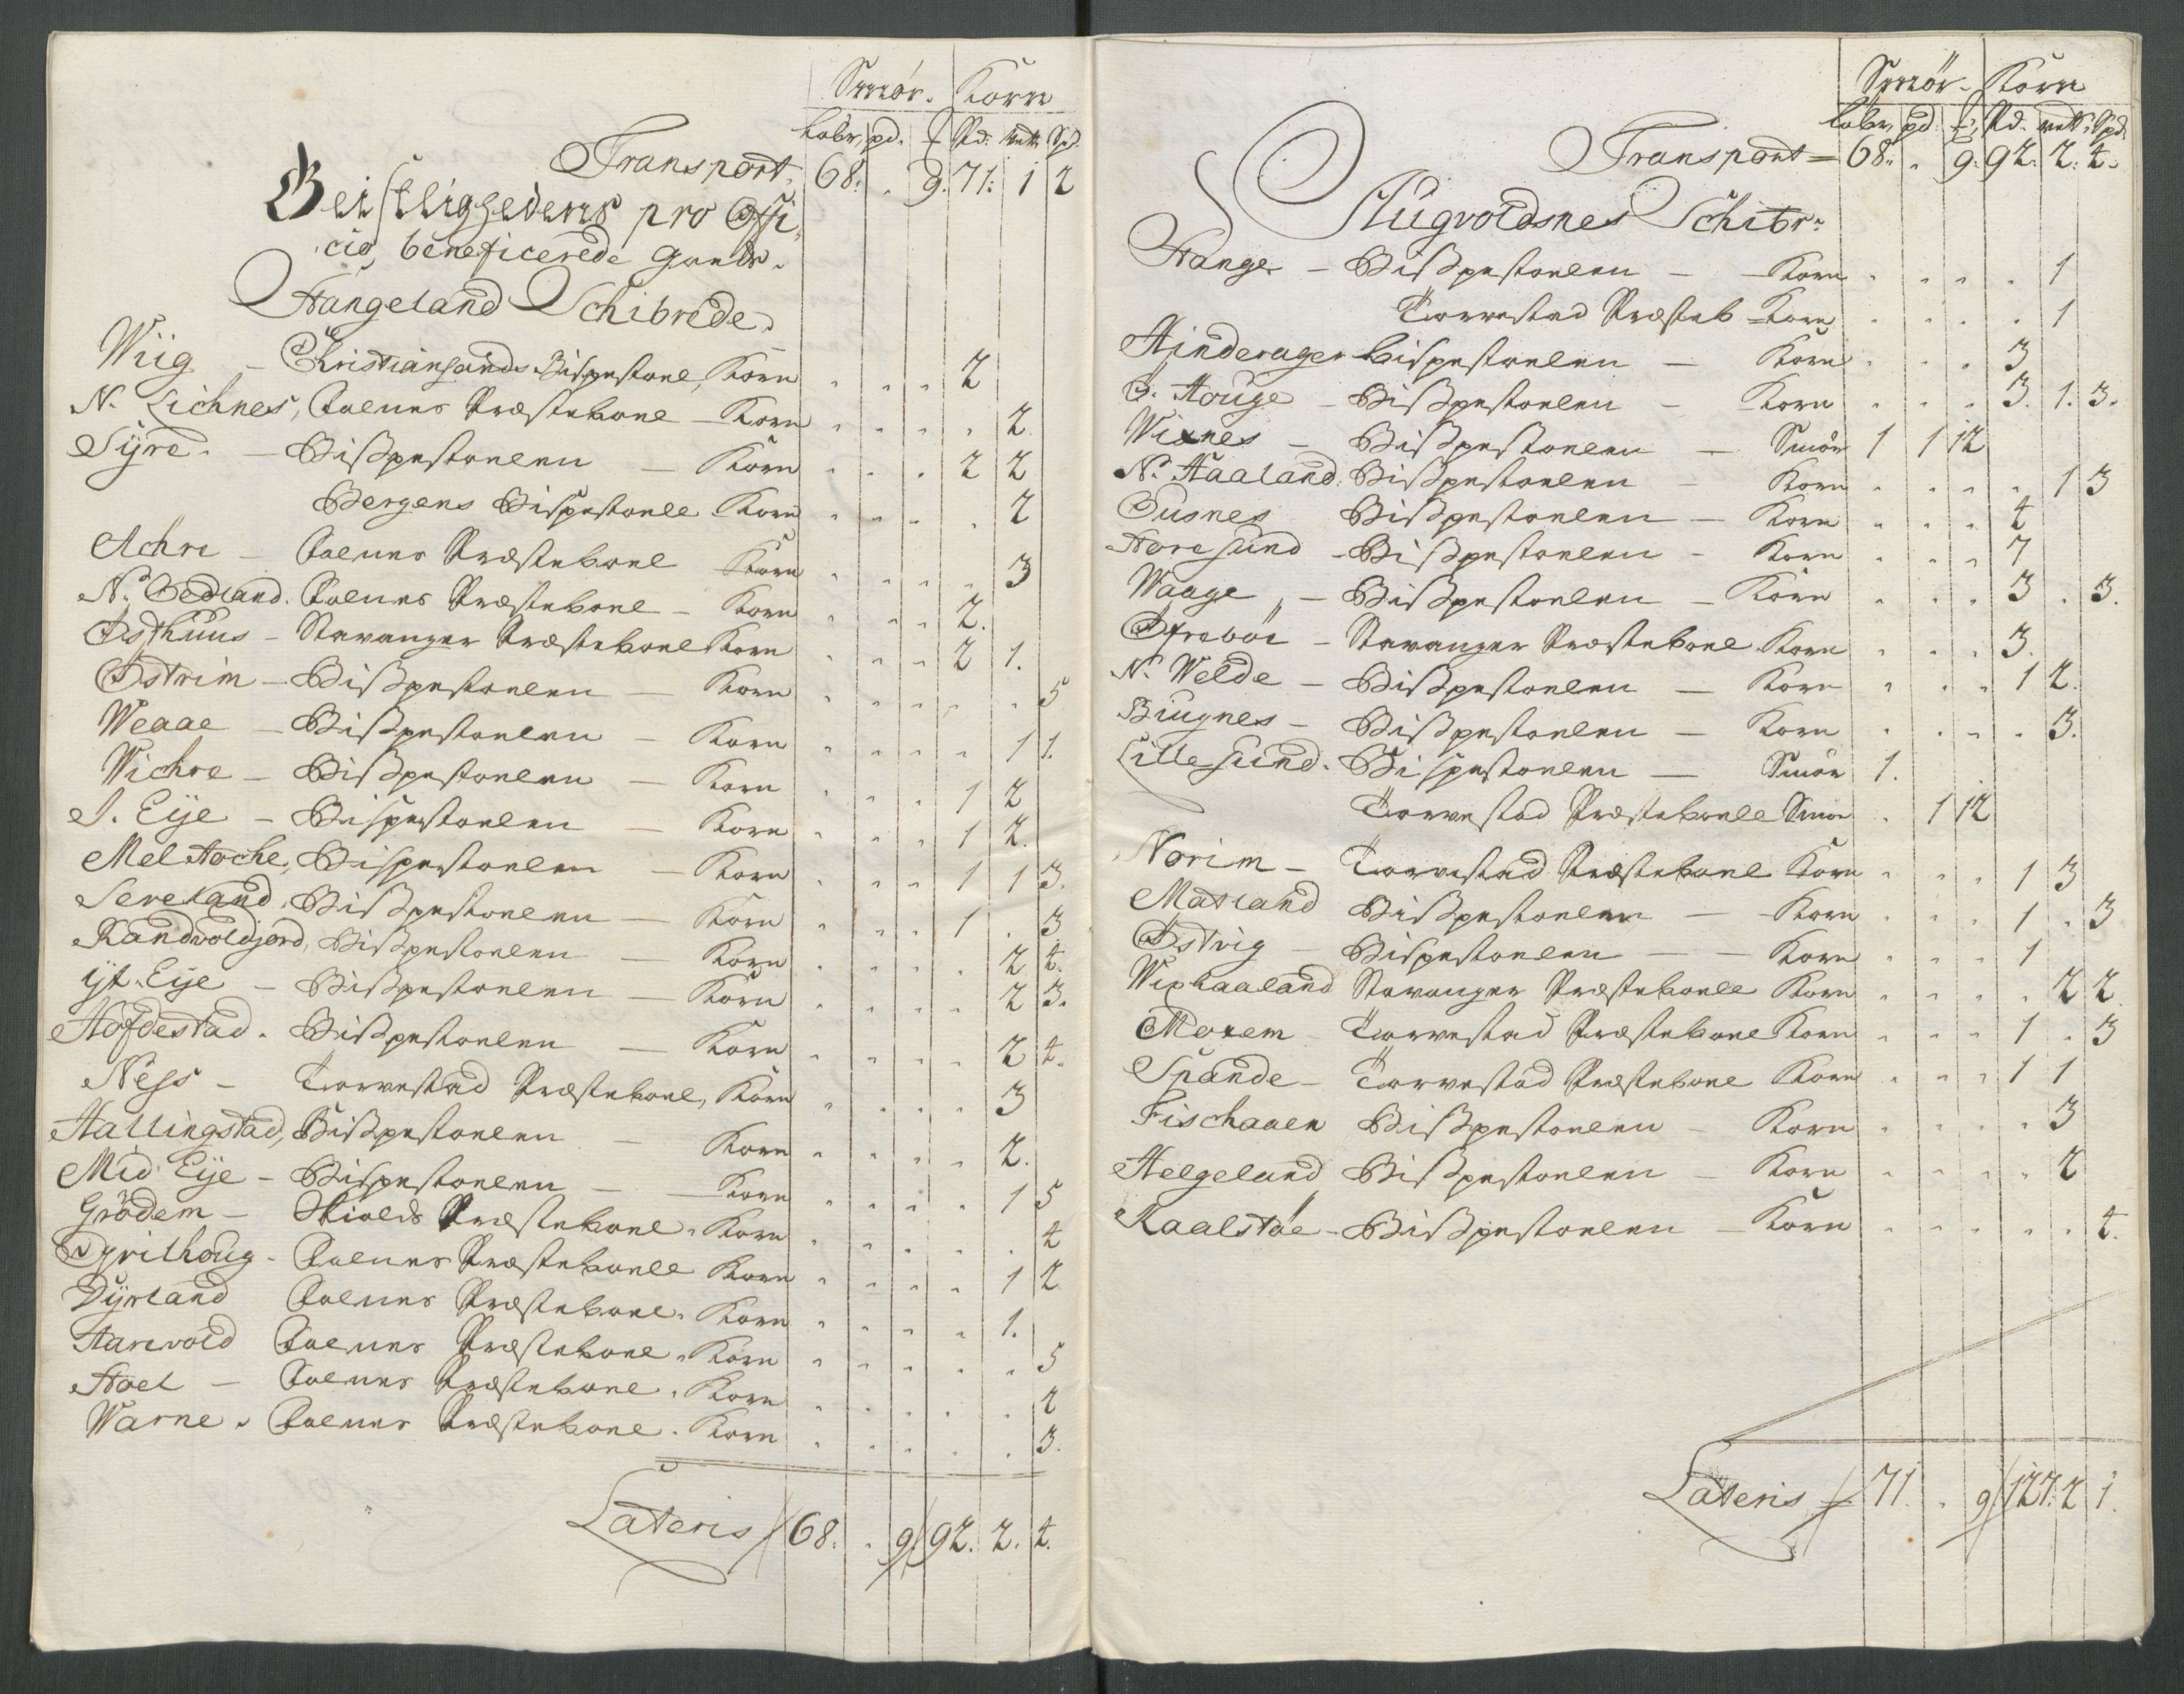 Smör. Korn
Løber, pd. ℔ Pd. vett. Spd.
Transport, 68. „ 9. 71. 1 2
Geistlighedens pro Offi„
cio beneficerede Goeds.
Hangeland Schibrede.
Wiig – Christiansands Bispestoel, Korn „ „ „ 2
N. Lichnes, Aalnes Præsteboel – Korn „ „ „ „ 2.
Syre. – Bißpestoelen – Korn „ „ „ 2 2
Bergens Bispestoell Korn „ „ „ „ 2
Achre – Aalnes Præsteboel Korn „ „ „ „ 3
N. Bedland. Aalnes Præsteboel – Korn „ „ „ 2.
Østhuus – Stavanger Præsteboel Korn „ „ „ 2 1.
Østrim – Bißpestoelen – Korn „ „ „ „ „ 5
Weaae – Bißpestoelen – Korn „ „ „ „ 1 1.
Wichre – Bißpestoelen – Korn „ „ „ 1 2
S. Eye – Bispestoelen – Korn „ „ „ 1 2.
Mel Hoche, Bispestoelen – Korn „ „ „ 1 1 3.
Sereland, Bißpestoelen – Korn „ „ „ 1 . 3
Randvoldjord, Bißpestoelen – Korn „ „ „ „ 2 4.
yt. Eye – Bißpestoelen – Korn „ „ „ „ 2 3.
Hofdestad. Bißpestoelen – Korn „ „ „ „ 2 4.
Ness – Torvestad Præsteboel, Korn „ „ „ „ 3
Hallingstad, Bißpestoelen – Korn „ „ „ „ 2.
Mid Eye – Bispestoelen – Korn „ „ „ „ 1 5
Grödem – Skiolds Præsteboel. Korn „ „ „ „ „ 4
Spilhoug – Aalnes Præsteboell Korn „ „ „ „ 1 2
Dyrland Aalnes Præsteboel. Korn „ „ „ „ 1.
Harevold Aalnes Præsteboel. Korn „ „ „ „ „ 5
Hoel – Aalnes Præsteboel. Korn „ „ „ „ „ 2
Warne. Aalnes Præsteboel. Korn „ „ „ „ „ 3.
Lateris 68. „ 9 92. 2. 4.
Smör. Korn
Løber, pd. ℔ Pd. vett. Spd.
Transport = 68. „ 9. 92. 2. 4.
Augvoldsnes Schibr:
Hange – Bißpestoelen – Korn „ „ „ „ 1
Torvestad Præsteb Korn „ „ „ „ 1
Hinderager bispestoelen – Korn „ „ „ 3
S. Houge – Bißpestoelen – Korn „ „ „ 3. 1. 3.
Wixnes – Bißpestoelen – Smör 1 1 12
N. Haaland. Bißpestoelen – Korn „ „ „ „ 1 3
Dusnes Bißpestoelen – Korn „ „ „ 4
Horesund – Bißpestoelen – Korn „ „ „ 7
Waage, – Bißpestoelen – Korn „ „ „ 3 . 3.
Øfreböe – Stavanger Præsteboel Korn „ „ „ 3.
N. Welde – Bißpestoelen – Korn „ „ „ 1 2.
Biugnes – Bißpestoelen – Korn „ „ „ „ 3.
Lillesund. Bispestoelen – Smör 1.
Torvestad Præsteboell Smör „ 1 12
Norim – Torvestad Præsteboel Korn „ „ „ 1 3
Matland Bißpestoelen – Korn „ „ „ 1 . 3
Østvig – Bispestoelen – – Korn „ „ „ 1
Wixhaaland Stavanger Præsteboell Korn „ „ „ „ 2 2
Moxem – Torvestad Præsteboel Korn „ „ „ 1 . 3
Spande – Torvestad Præsteboel Korn „ „ „ 1 1
Fischaaen Bißpestoelen – Korn „ „ „ „ 3
Helgeland Bißpestoelen – Korn „ „ „ „ 2
Kaalstöe – Bißpestoelen – Korn „ „ „ „ „ 4.
Lateris 71. „ 9 127. 2 1.